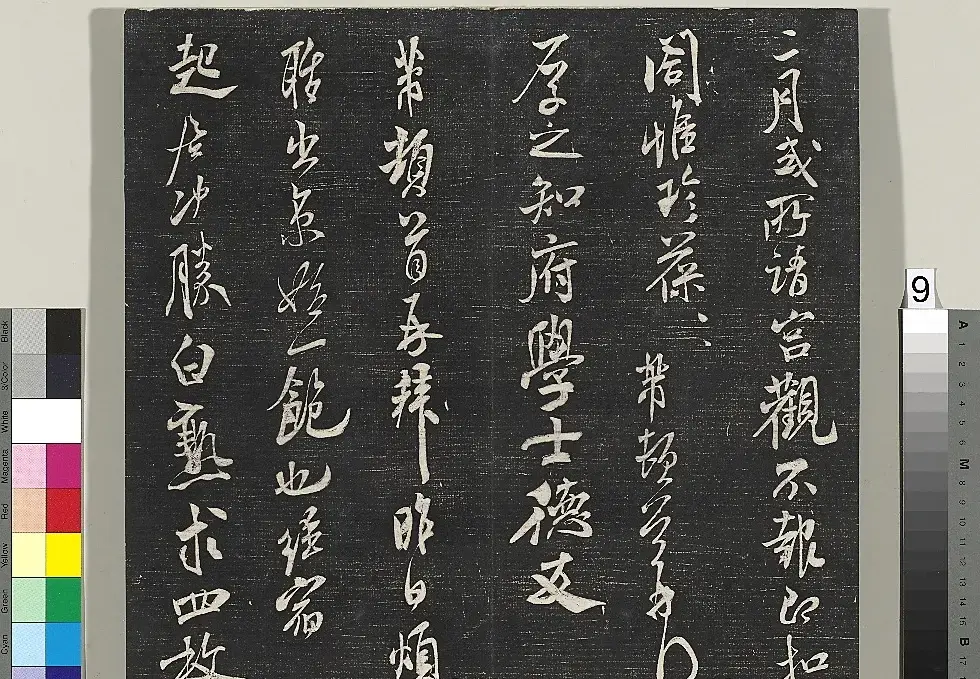 二月或所請宮觀不報即扣
閤惟珍葆芾頓首再
厚之知府學士德丈
芾頓首再拜昨日煩
出京始一飽也經宿
起居沖勝白熟求四
9
Black
3/Color
White
Magenta
Red
Yellow
Green
Cyan
A
1
2
3
4
5
6
M
8
9
10
11
12
13
14
15
B
17